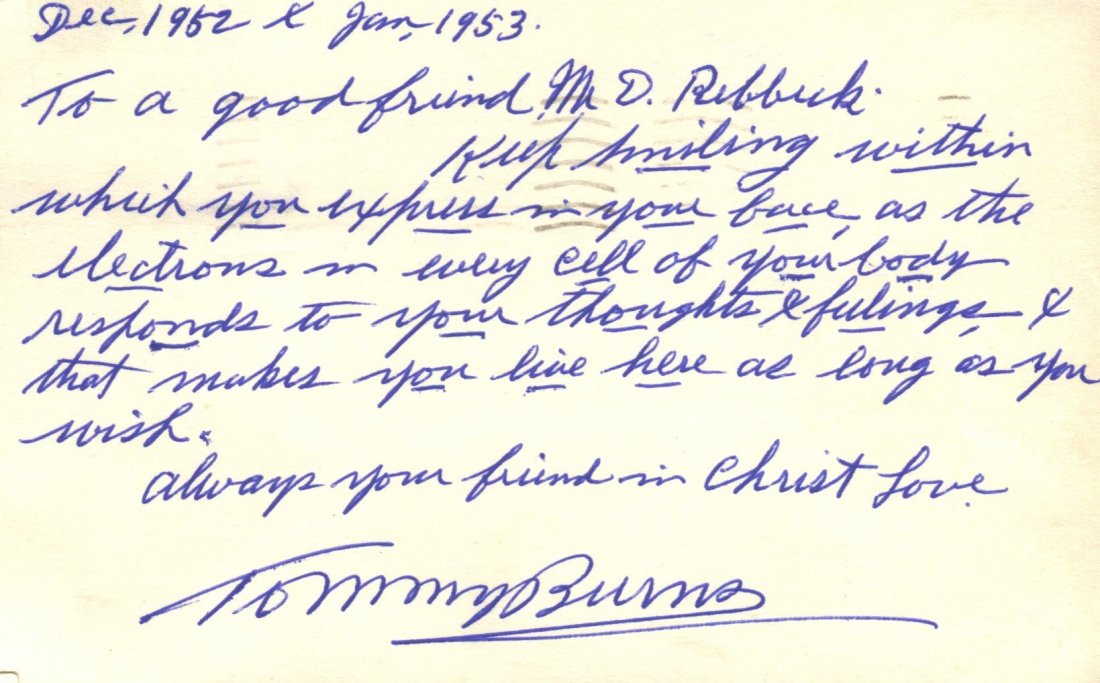 Dec, 1952 & Jan, 1953.
To a good friend, Mr D. Rebbeck.
Keep smiling within
which you express in your face, as the
electrons in every cell of your body
responds to your thoughts & feelings, &
that makes you live here as long as you
wish.
always your friend in Christ Love.
Tommy Burns